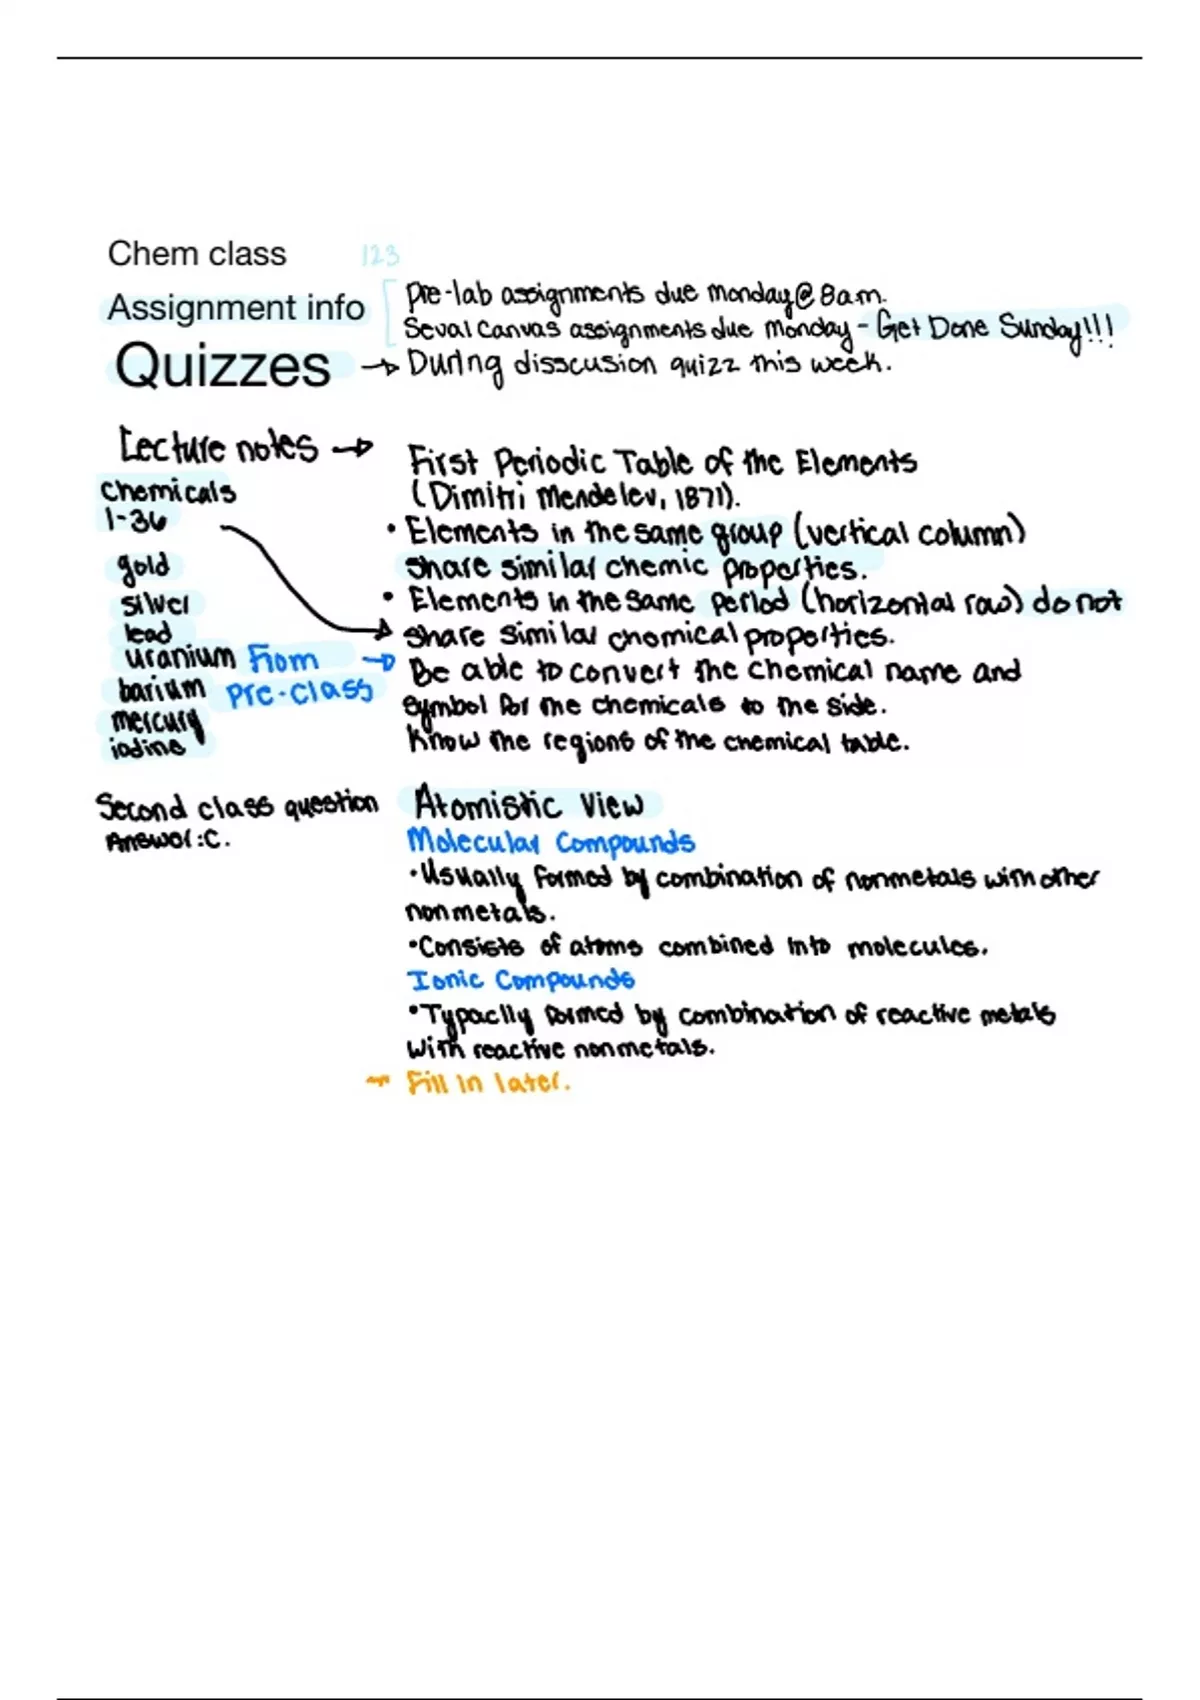 Chem class 123
Assignment info
Pre-lab assignments due monday @ 8am.
Seval Canvas assignments due monday - Get Done Sunday!!!
Quizzes → During disscusion quizz this week.
Lecture notes →
First Periodic Table of the Elements
(Dimitri Mendelev, 1871).
• Elements in the same group (vertical column)
share similar chemic properties.
• Elements in the same period (horizontal row) do not
share similar chomical properties.
→ Be able to convert the chemical name and
symbol for the chemicals to the side.
Know the regions of the chemical table.
Chemicals
1-36
gold
silver
lead
uranium
barium
mercury
iodine
From
pre-class
Second class question
Answer: C.
Atomistic View
Molecular Compounds
• Usually formed by combination of nonmetals with other
nonmetals.
• Consists of atoms combined into molecules.
Ionic Compounds
• Typaclly formed by combination of reactive metals
with reactive nonmetals.
→ Fill in later.